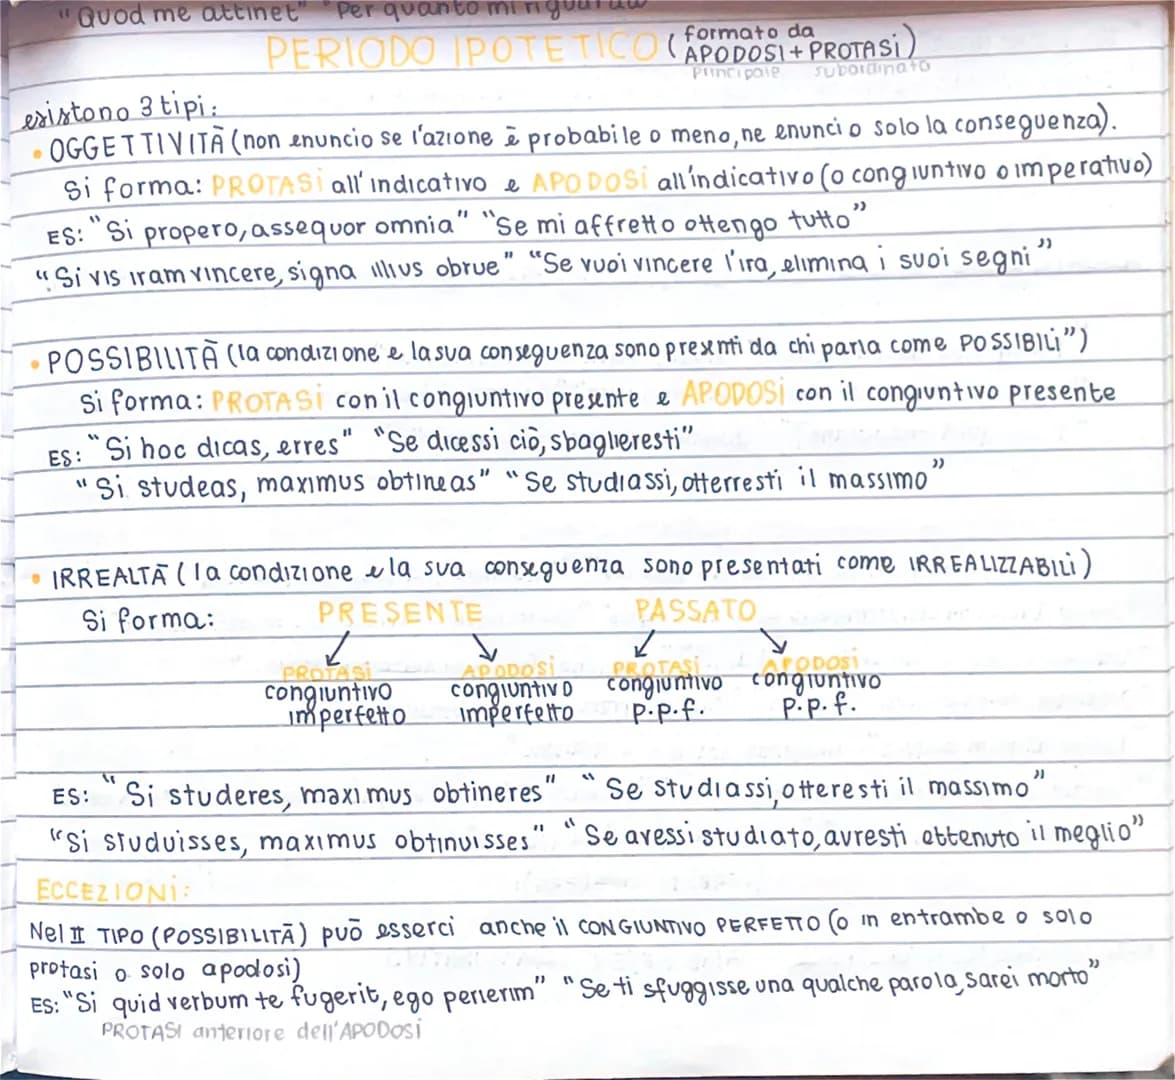 "Quod me attinet" "Per quanto mi riguarda
PERIODO IPOTETICO (formato da APODOSI + PROTASI)
principale subordinata
esistono 3 tipi:
• OGGETTIVITÀ (non enuncio se l'azione è probabile o meno, ne enuncio solo la conseguenza).
Si forma: PROTASI all'indicativo e APODOSI all'indicativo (o congiuntivo o imperativo)
ES: "Si propero, assequor omnia" "Se mi affretto ottengo tutto"
"Si vis iram vincere, signa illius obrue" "Se vuoi vincere l'ira, elimina i suoi segni"
• POSSIBILITÀ (la condizione e la sua conseguenza sono presenti da chi parla come POSSIBILI")
Si forma: PROTASI con il congiuntivo presente e APODOSI con il congiuntivo presente
ES: "Si hoc dicas, erres" "Se dicessi ciò, sbaglieresti"
"Si studeas, maximus obtineas" "Se studiassi, otterresti il massimo"
• IRREALTÀ (la condizione e la sua conseguenza sono presentati come IRREALIZZABILI)
Si forma: PRESENTE PASSATO
PROTASI APODOSI PROTASI APODOSI
congiuntivo congiuntivo congiuntivo congiuntivo
imperfetto imperfetto p.p.f. p.p.f.
ES: "Si studeres, maximus obtineres" "Se studiassi, otteresti il massimo"
"Si studuisses, maximus obtinuisses" "Se avessi studiato, avresti ottenuto il meglio"
ECCEZIONI:
Nel II TIPO (POSSIBILITÀ) può esserci anche il CONGIUNTIVO PERFETTO (o in entrambe o solo
protasi o solo apodosi)
ES: "Si quid verbum te fugerit, ego perierim" "Se ti sfuggisse una qualche parola, sarei morto"
PROTASI anteriore dell'APODOSI